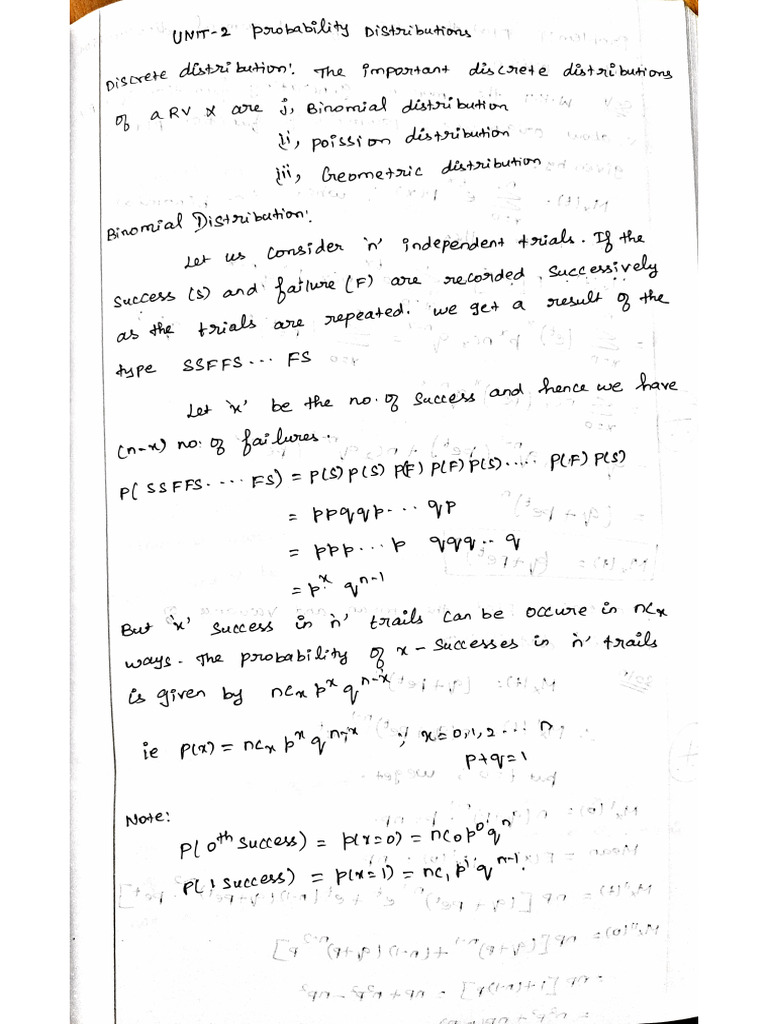 UNIT-2 Probability Distributions
Discrete distribution: The important discrete distributions
of a RV X are i, Binomial distribution
ii, poission distribution
iii, Geometric distribution
Binomial Distribution:
Let us consider 'n' independent trials. If the
success (s) and failure (F) are recorded successively
as the trials are repeated. we get a result of the
type SSFFS... FS
Let 'x' be the no. of success and hence we have
(n-x) no: of failures.
P( SSFFS.... FS) = P(S) P(S) P(F) P(F) P(S)..... P(F) P(S)
= ppqqp... qp
= ppp...p qqq.. q
= p^x q^n-1
But 'x' success in 'n' trails can be occure in ncx
ways. The probability of x - successes in 'n' trails
is given by ncx p^x q^n-x
ie P(x) = ncx p^x q^n-x ; x=0,1,2... n
p+q=1
Note:
P( 0th success) = p(x=0) = nc0 p^0 q^n
P( 1 success) = p(x=1) = nc1 p^1 q^n-1.